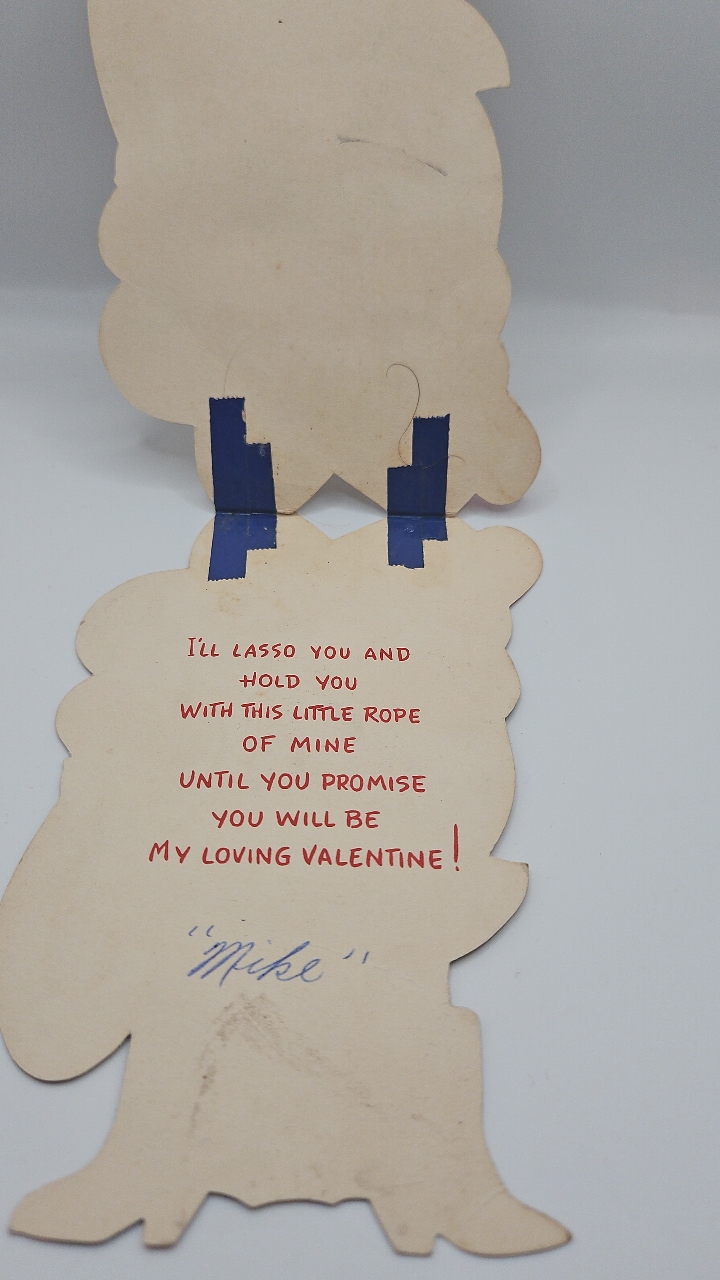 I'LL LASSO YOU AND
HOLD YOU
WITH THIS LITTLE ROPE
OF MINE
UNTIL YOU PROMISE
YOU WILL BE
MY LOVING VALENTINE!
"Mike"